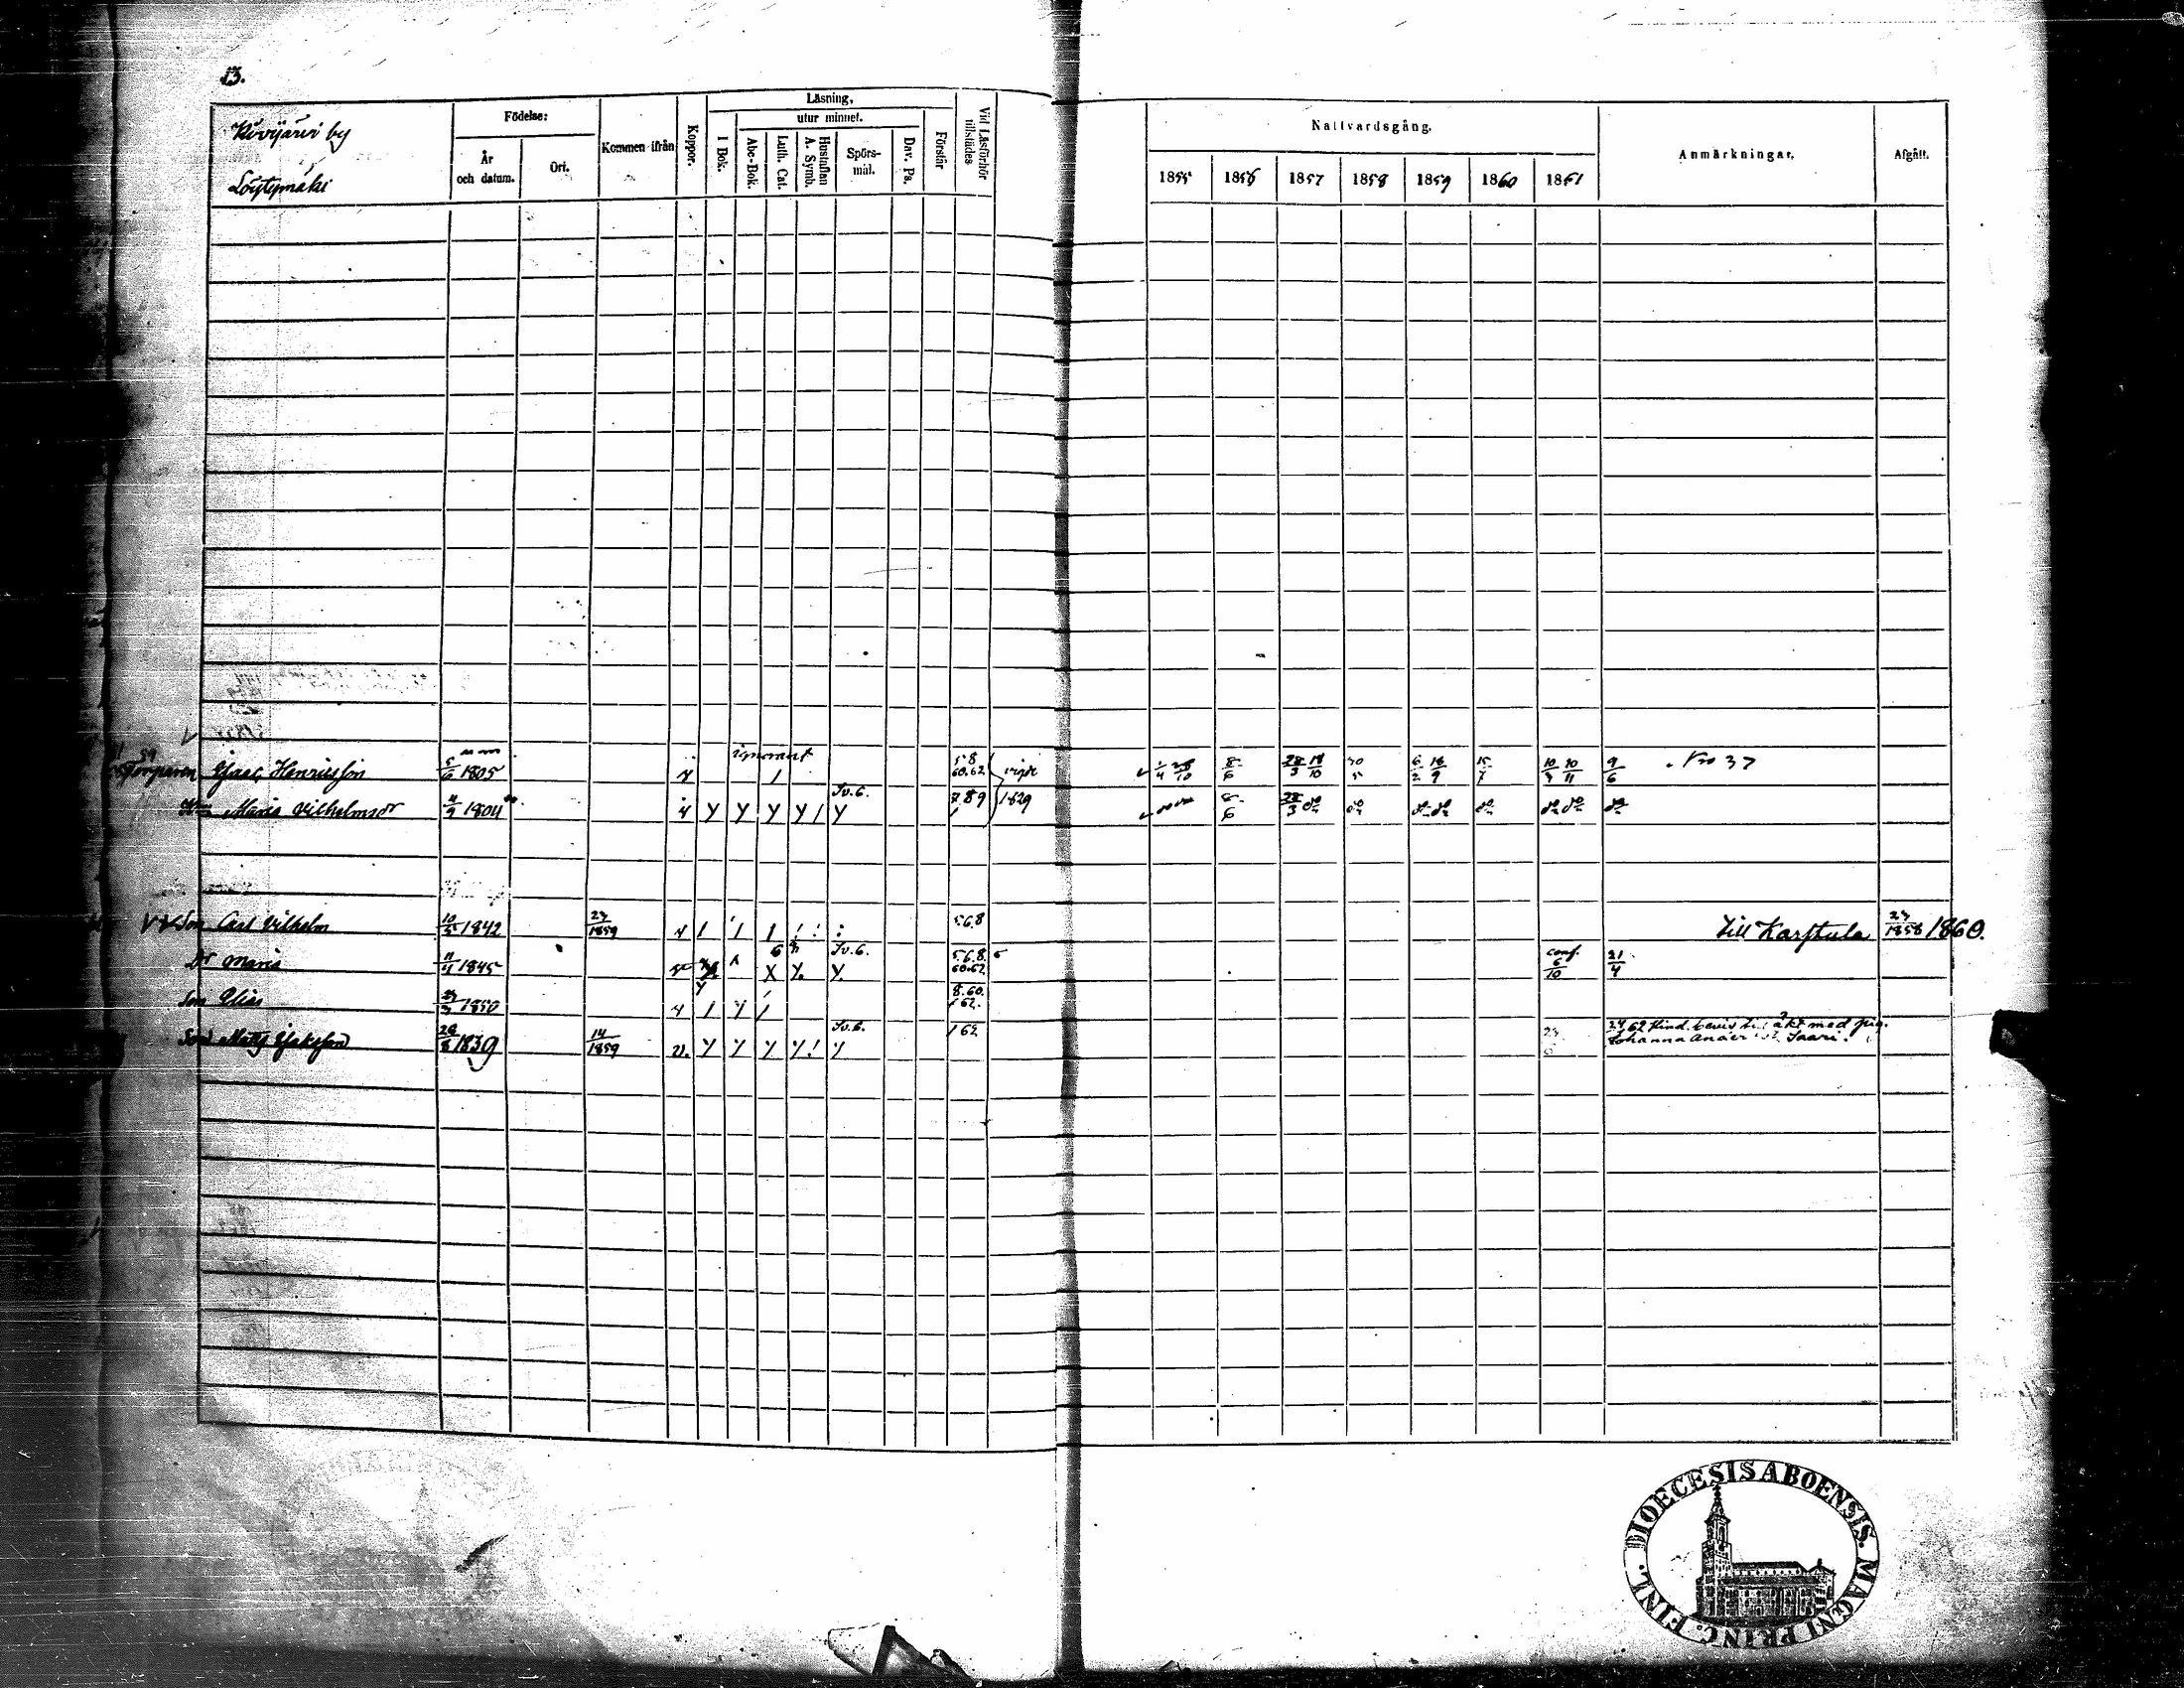 13.
Kivijärvi by
Löytymäki
Födelse:
År och datum.
Ort.
Kommen ifrån
Koppor.
Läsning,
I Bok.
utur minnet.
Abc-Bok.
Luth. Cat.
Hustaflan A. Symb.
Spörs-mål.
Dav. Ps.
Förstår
Vid Läsförhör tillstädes
Nattvardsgång.
1855 1856 1857 1858 1859 1860 1861
Anmärkningar.
Afgått.
Isaac Henriksson 5/6 1805 ignorant 58 60.62 vigde 1/4 28/10 8/6 28/3 18/10 6/2 18/9 15/7 10/3 10/11 9/6 No 37
Maria Vilhelmsdr 4/9 1804 Sv.6. 1829 8/6 28/3 do do do do do do do do
Son Carl Vilhelm 10/5 1842 23/1859 5.6.8 Till Karstula 23/1858 1860.
Dr Maria 11/4 1845 Sv.6. 5.6.8. 60.62 conf. 6/10 21/4
Son Elias 1850 8.60. 62.
Son Matts Isaksson 26/8 1839 14/1859 v. Sv.6. 62 62 Hind. bevis till äkt med pig.
Johanna Saari.
DIOECESIS ABOENSIS. MAGNI PRINC. FINL.